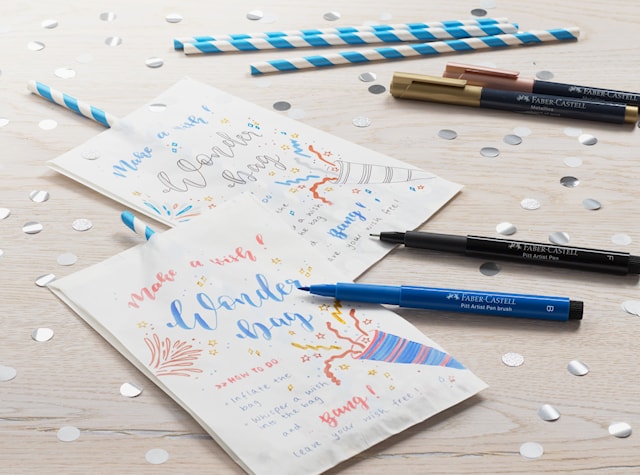 Make a wish!
Wonder
bag
HOW TO DO
Bang!
your wish free!
FABER-CASTELL
Metallics
FABER-CASTELL
FABER-CASTELL
Pitt Artist Pen
F
FABER-CASTELL
Pitt Artist Pen brush
B
Make a wish!
Wonder
bag
>>HOW TO DO:
• Inflate the
bag
• Whisper a wish
into the bag
and
Bang!
Leave your wish free!